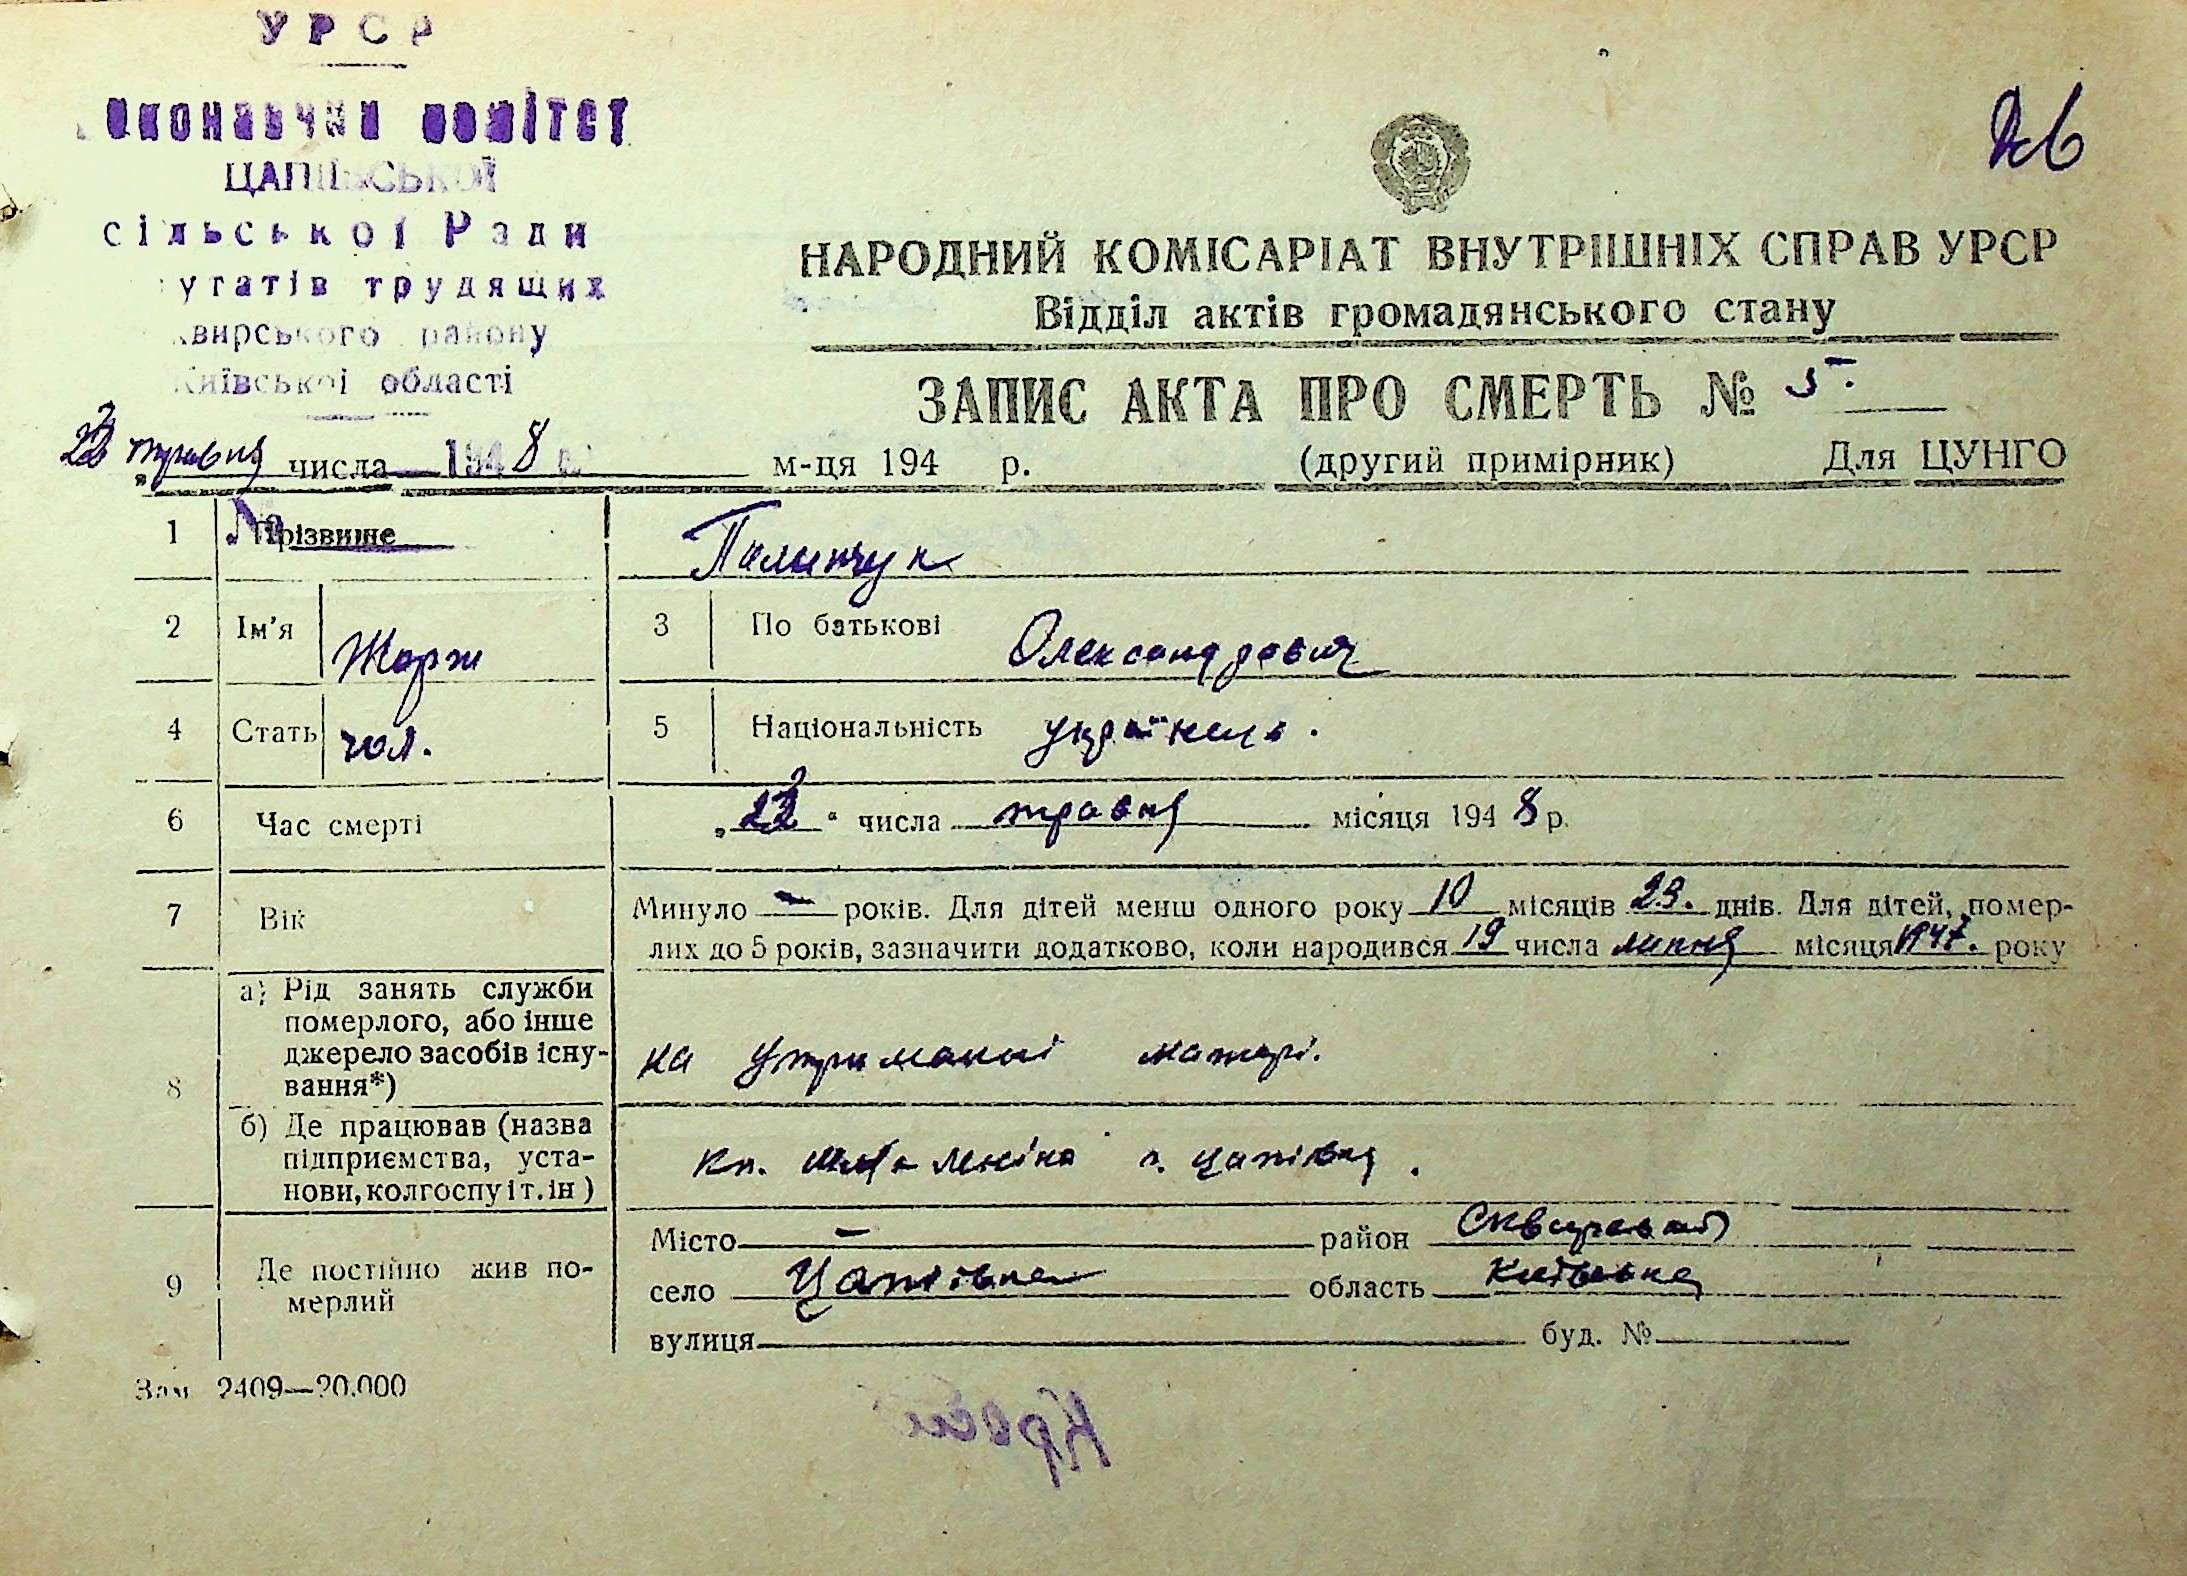 УРСР
виконавчий комітет
ЦАПІЇВСЬКОЇ
сільської Ради
путатів трудящих
Сквирського району
Київської області
26
НАРОДНИЙ КОМІСАРІАТ ВНУТРІШНІХ СПРАВ УРСР
Відділ актів громадянського стану
ЗАПИС АКТА ПРО СМЕРТЬ № 5.
травня числа 1948 р. м-ця 194 р. (другий примірник) Для ЦУНГО
№
1 Прізвище Полищук
2 Ім'я Жорж 3 По батькові Олександрович
4 Стать чол. 5 Національність українець.
6 Час смерті „22“ числа травня місяця 1948 р.
7 Вік Минуло — років. Для дітей менш одного року 10 місяців 23. днів. Для дітей, помер-
лих до 5 років, зазначити додатково, коли народився 19 числа липня місяця 1947. року
8 а) Рід занять служби
померлого, або інше
джерело засобів існу-
вання*)
на утриманні матері.
б) Де працював (назва
підприємства, уста-
нови, колгоспу і т. ін)
Леніна с. Цапіївка.
9 Де постійно жив по-
мерлий
Місто — район Сквирський
село Цапіївка область Київська
вулиця буд. №
Зам 2409—20.000